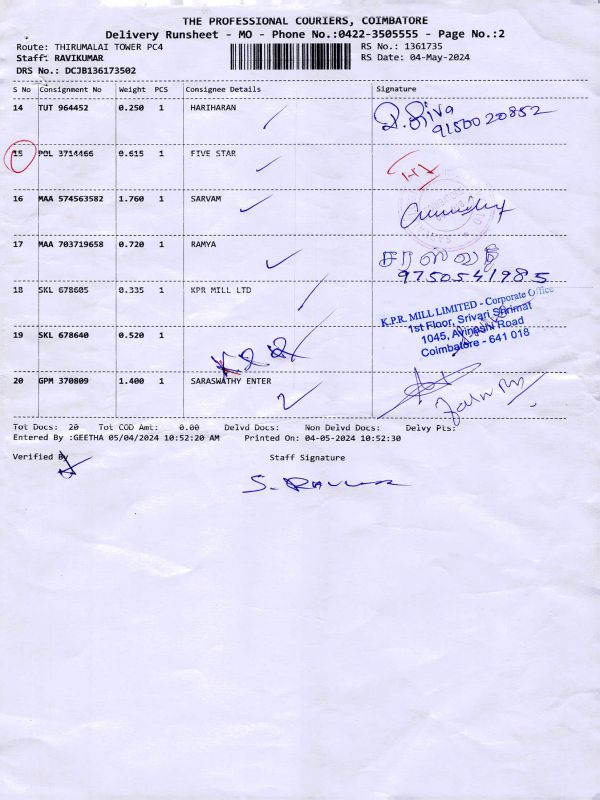 THE PROFESSIONAL COURIERS, COIMBATORE
Delivery Runsheet - MO - Phone No.:0422-3505555 - Page No.:2
Route: THIRUMALAI TOWER PC4 RS No.: 1361735
Staff: RAVIKUMAR RS Date: 04-May-2024
DRS No.: DCJB136173502
S No Consignment No Weight PCS Consignee Details Signature
14 TUT 964452 0.250 1 HARIHARAN
9150020852
15 POL 3714466 0.615 1 FIVE STAR
16 MAA 574563582 1.760 1 SARVAM
17 MAA 703719658 0.720 1 RAMYA சரஸ்வதி
9750541985
18 SKL 678605 0.335 1 KPR MILL LTD
K.P.R. MILL LIMITED - Corporate Office
1st Floor, Srivari Shrimat
1045, Avinashi Road
Coimbatore - 641 018
19 SKL 678640 0.520 1
20 GPM 370809 1.400 1 SARASWATHY ENTER
Tot Docs: 20 Tot COD Amt: 0.00 Delvd Docs: Non Delvd Docs: Delvy Pts:
Entered By :GEETHA 05/04/2024 10:52:20 AM Printed On: 04-05-2024 10:52:30
Verified By Staff Signature